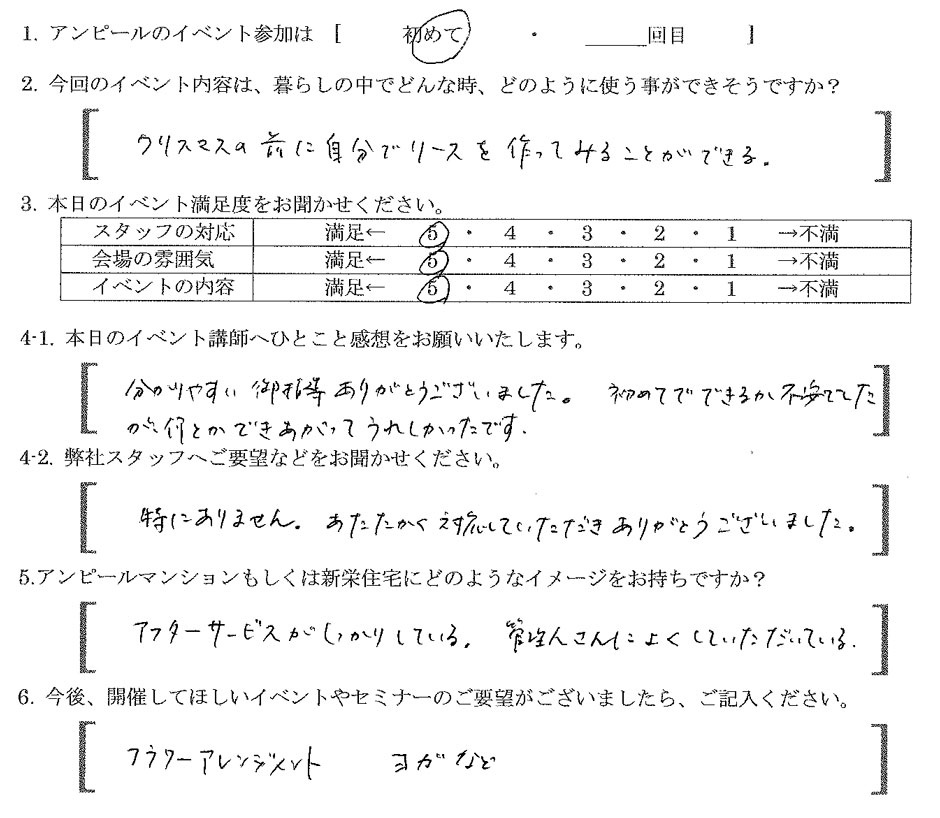 1. アンピールのイベント参加は [ 初めて ・ ______回目 ]
2. 今回のイベント内容は、暮らしの中でどんな時、どのように使う事ができそうですか?
クリスマスの前に自分でリースを作ってみることができる。
3. 本日のイベント満足度をお聞かせください。
スタッフの対応 満足← 5 ・ 4 ・ 3 ・ 2 ・ 1 →不満
会場の雰囲気 満足← 5 ・ 4 ・ 3 ・ 2 ・ 1 →不満
イベントの内容 満足← 5 ・ 4 ・ 3 ・ 2 ・ 1 →不満
4-1. 本日のイベント講師へひとこと感想をお願いいたします。
分かりやすい御指導ありがとうございました。 初めてでできるか不安でした
が、何とかできあがってうれしかったです.
4-2. 弊社スタッフへご要望などをお聞かせください。
特にありません。 あたたかく対応していただきありがとうございました。
5.アンピールマンションもしくは新栄住宅にどのようなイメージをお持ちですか?
アフターサービスがしっかりしている。 管理人さんによくしていただいている.
6. 今後、開催してほしいイベントやセミナーのご要望がございましたら、ご記入ください。
フラワーアレンジメント ヨガなど